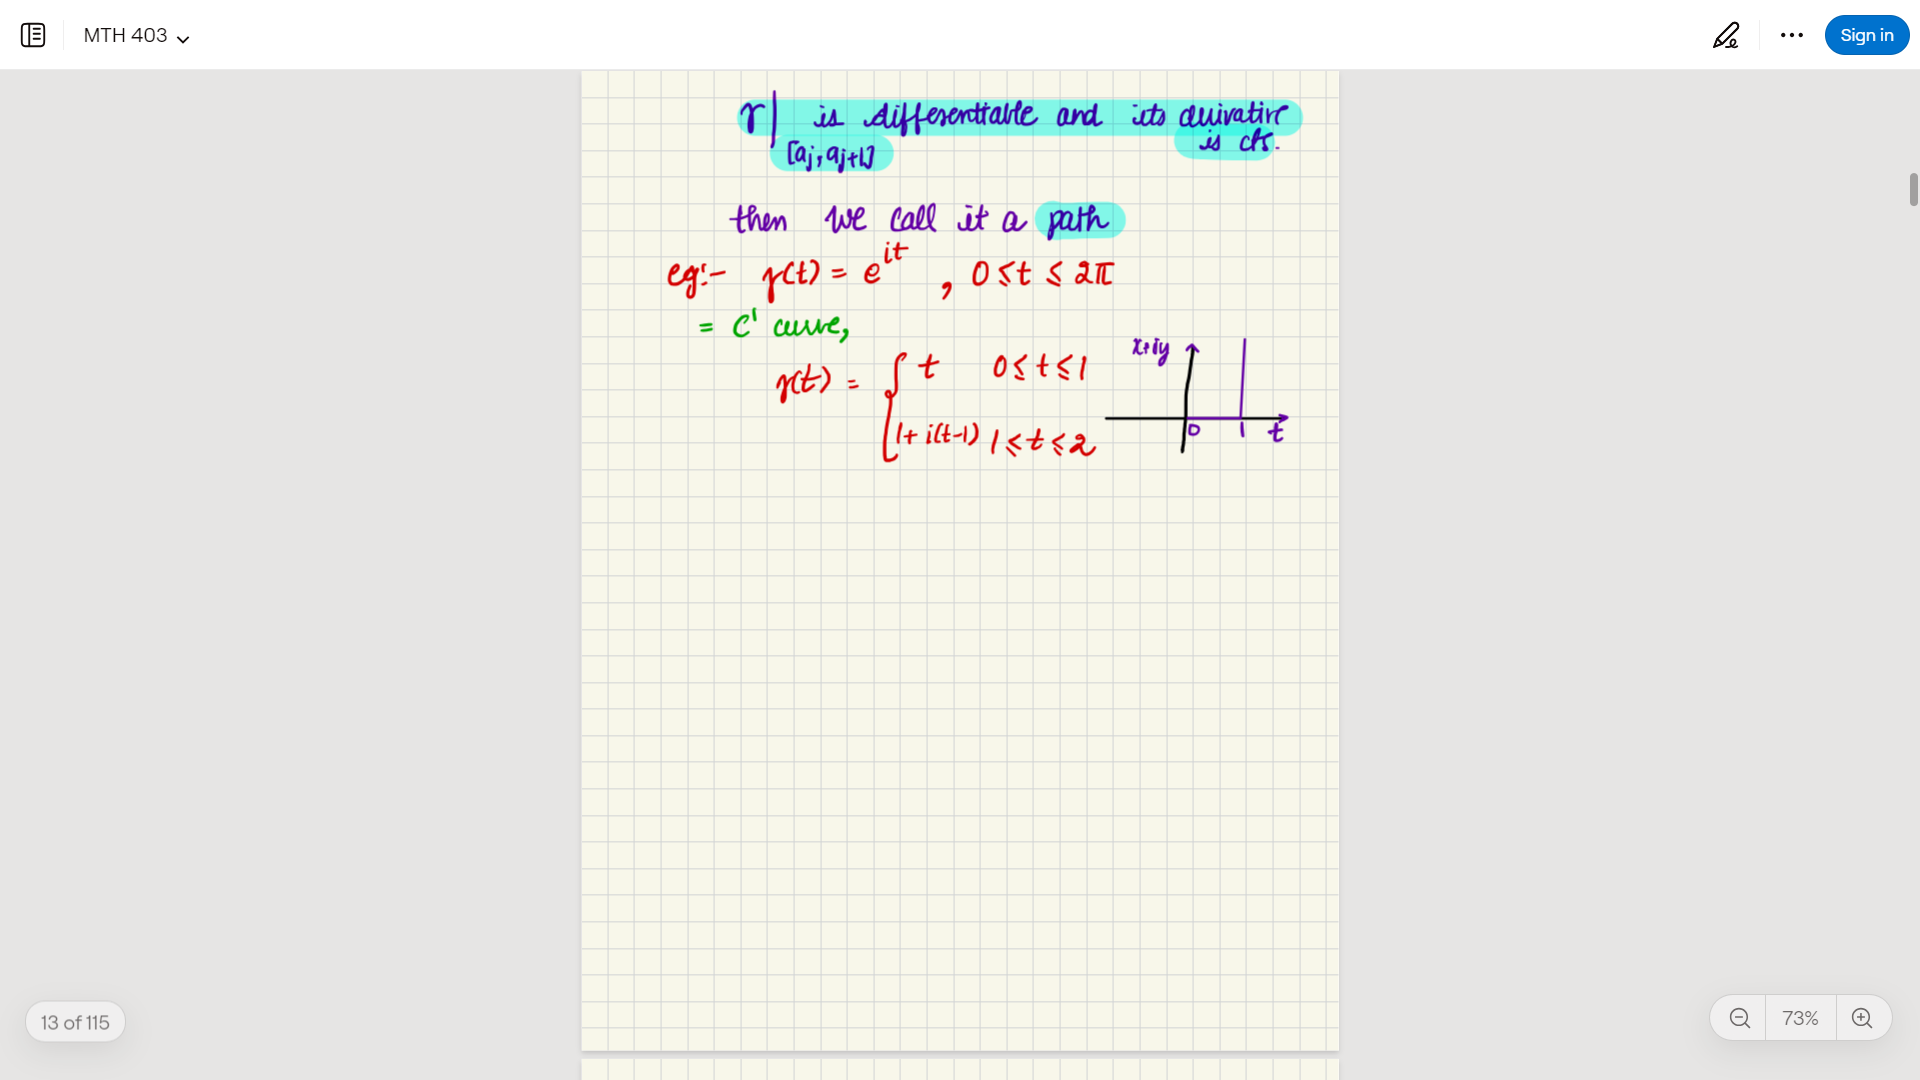 MTH 403
Sign in
γ| is differentiable and its derivative
[aj, aj+1] is cts.
then we call it a path
eg:- γ(t) = e^{it} , 0 ≤ t ≤ 2π
= C' curve,
γ(t) = { t 0 ≤ t ≤ 1
1+ i(t-1) 1 ≤ t ≤ 2
x+iy
0 1 t
13 of 115
73%